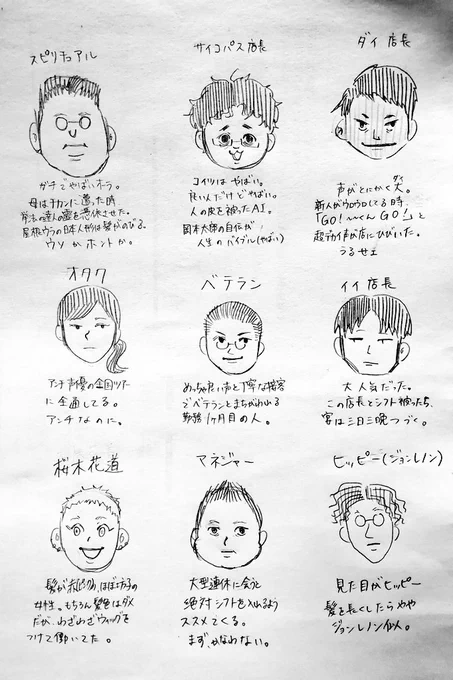 スピリチュアル
ガチでやばいオーラ。
母はチカンに遭った時
の達人の霊を憑依させた。
屋根ウラの日本人形は髪がのびる。
ウソかホントか。
サイコパス店長
コイツは やばい。
良い人だけど やばい。
人の皮を被ったAI。
岡本太郎の自伝が
人生の バイブル(やばい)
ダイ 店長
ダイ
声がとにかく大。
新人がウロウロしてる時、
「GO!〜くん GO!」と
超デカイ声が店にひびいた。
うるせェ
オタク
アンチ声優の全国ツアー
に全通してる。
アンチなのに。
ベテラン
めっちゃ良い声と丁寧な接客
でベテランとまちがわれる
勤務1ヶ月目の人。
イイ 店長
大人気だった。
この店長とシフト被ったら、
宴は三日三晩つづく。
桜木花道
髪が赤(ピンク)、ほぼ坊主の
女性。もちろん髪色はダメ
だが、わざわざウィッグを
つけて働いてた。
マネジャー
大型連休に会うと
絶対シフトを入れるよう
ススメてくる。
まず、かなわない。
ヒッピー(ジョンレノン)
見た目がヒッピー
髪を長くしたらやや
ジョンレノン似。